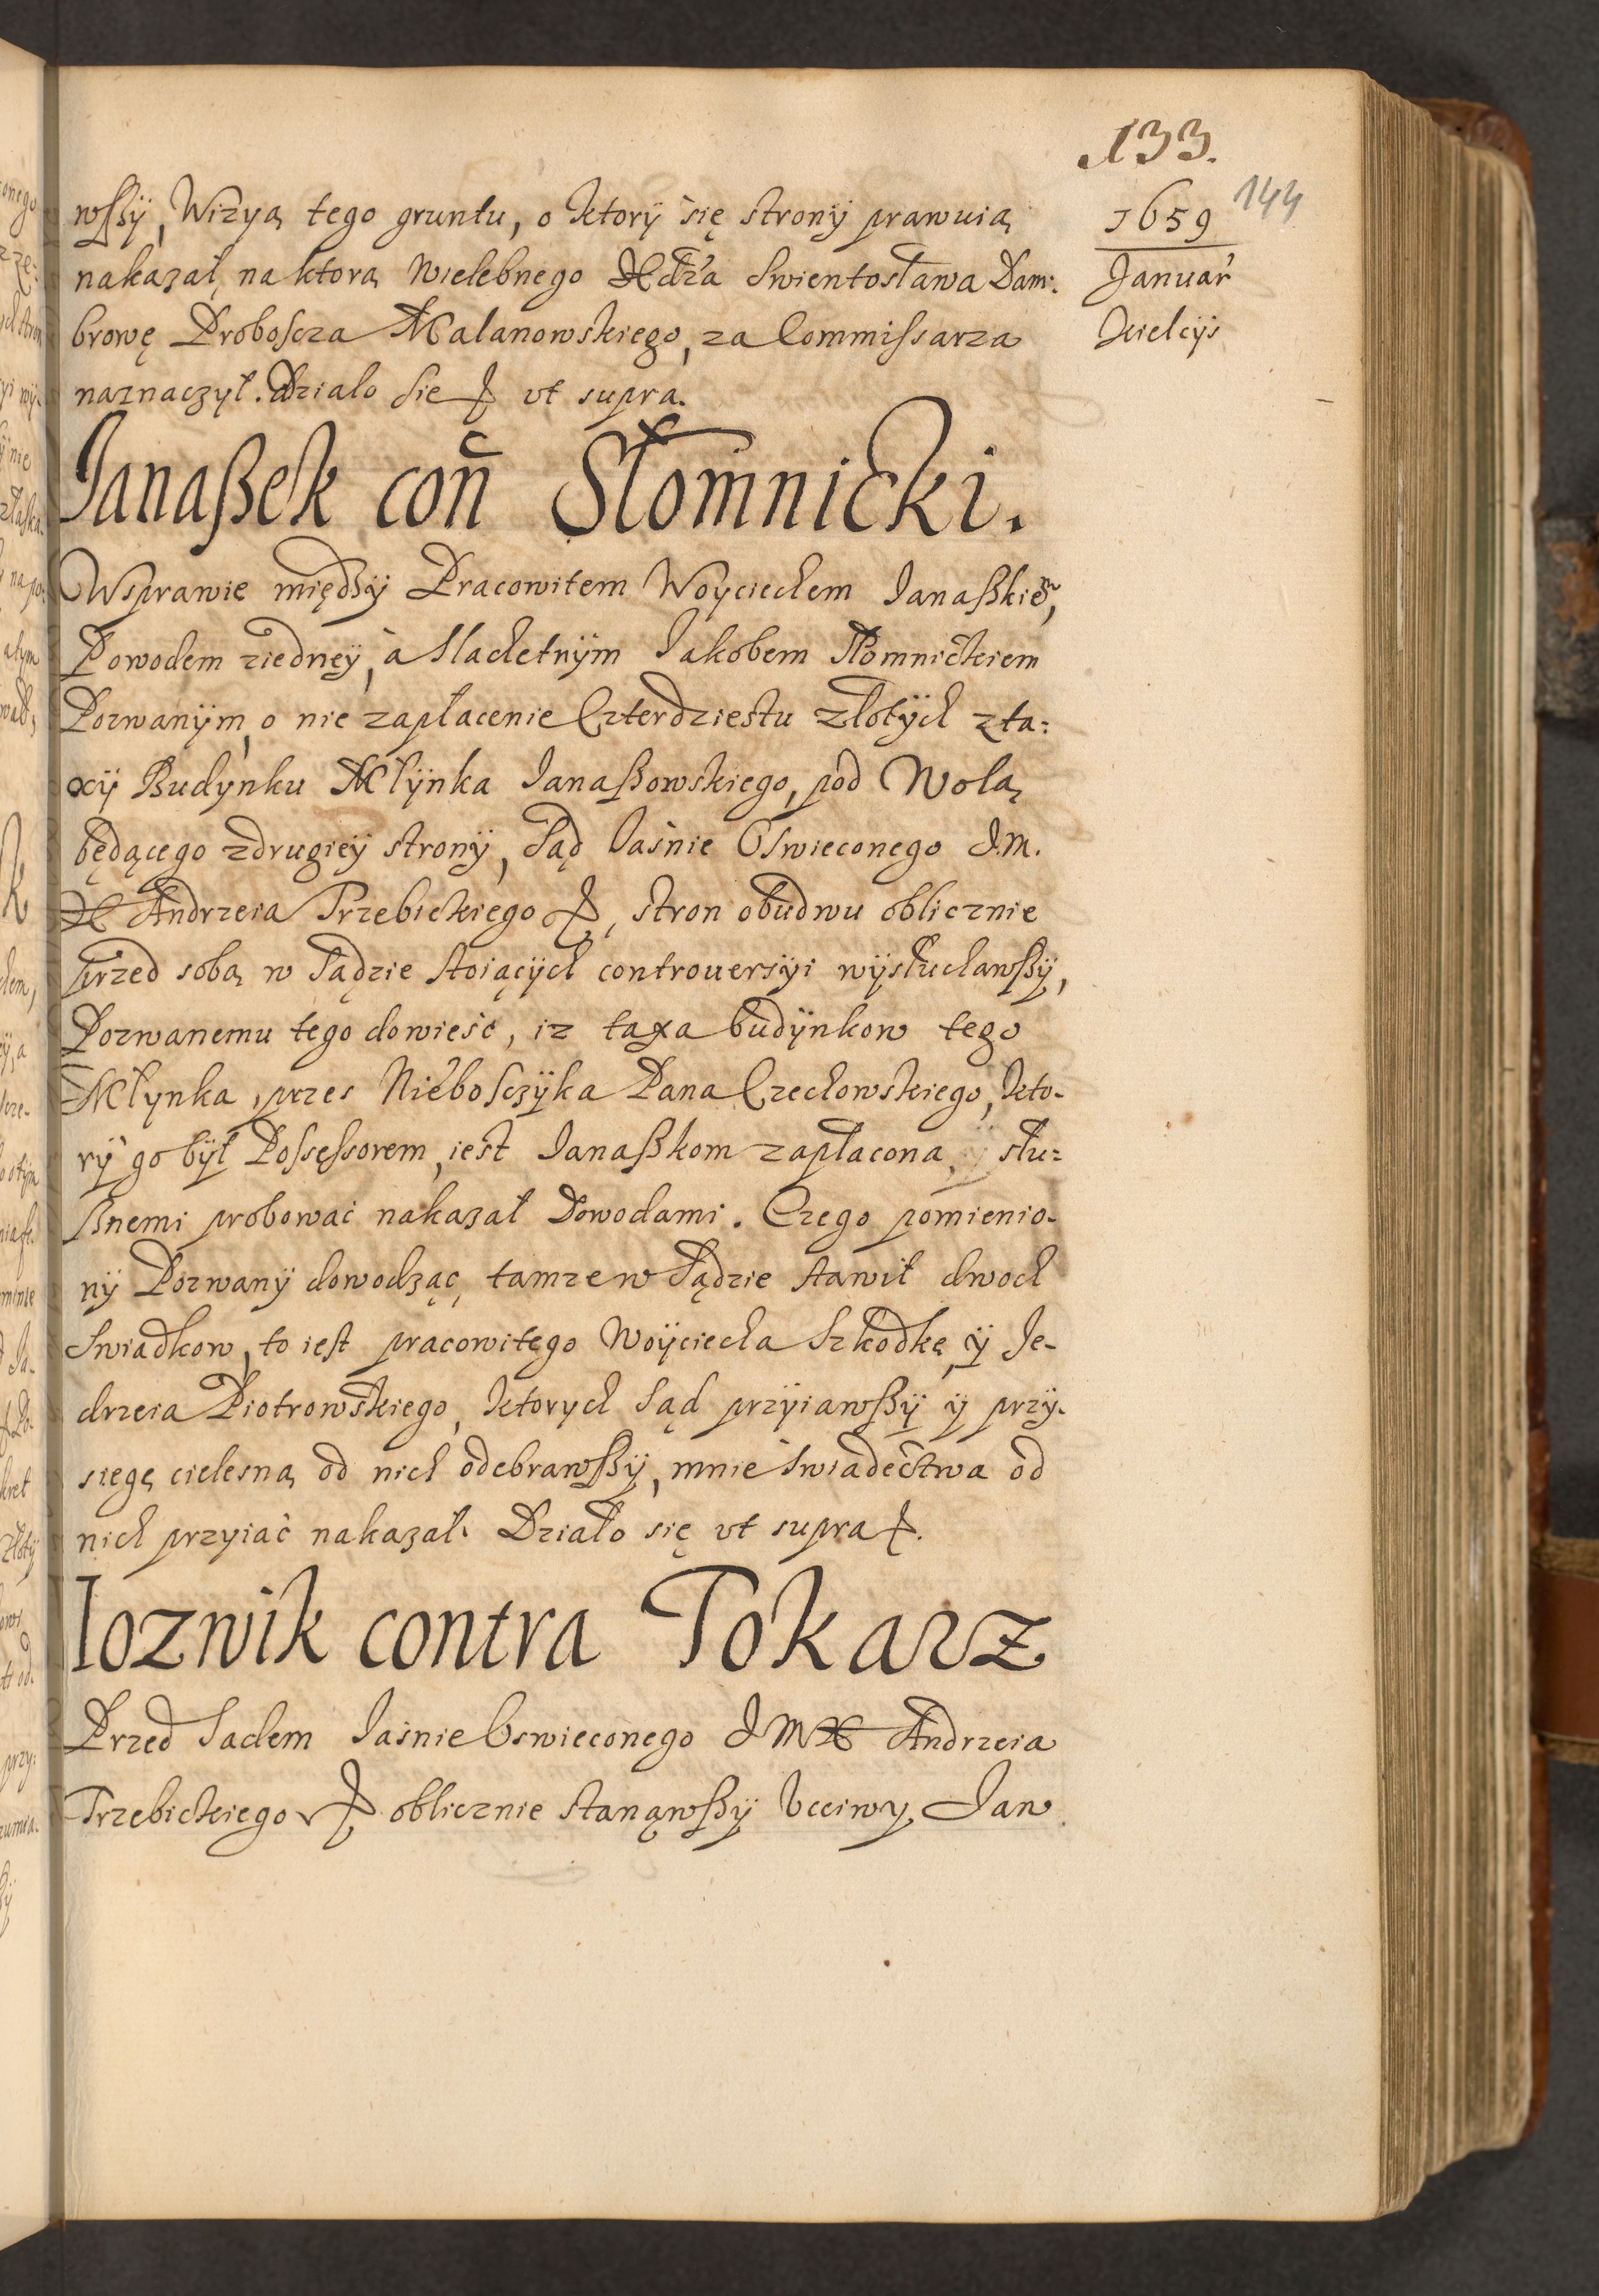 133.
144
1659
Januar̃
Kielcÿs
wſßÿ, Wizyą tego gruntu, o ktorÿ się stronÿ prawuią
nakazał, na ktorą Wielebnego Xdza Swientosława Dam:
browę Proboſcza Malanowskiego, za Commiſsarza
naznaczył. Działo sie ꝛ vt supra.
Janaßek coñ Słomnicki.
Wsprawie międzÿ Pracowitem Woyciechem Janaßkiem̃,
Powodem ziedneÿ, à Slachetnÿm Jakobem Słomnickiem
Pozwanÿm, o nie zapłacenie Czterdziestu złotÿch z ta:
xÿ Budynku Młÿnka Janaßowskiego, pod Wolą
będącego zdrugieÿ stronÿ, Sąd Jaśnie Oswieconego J.M.
X Andrzeia Trzebickiego ꝛ, stron obudwu oblicznie
przed sobą w Sądzie stoiącÿch controuersÿi wÿsłuchawſßÿ,
Pozwanemu tego dowieść, iz taxa budÿnkow tego
Młynka, przes Niebosczÿka Pana Czechowskiego, kto-
rÿ go bÿł Poſseſsorem, iest Janaßkom zapłacona, słu:
ßnemi probować nakazał Dowodami. Czego pomienio-
nÿ Pozwanÿ dowodząc, tamze w Sądzie stawił dwoch
Swiadkow, to iest pracowitego Woÿciecha Szkodkę, ÿ Je-
drzeia Piotrowskiego, ktorych Sąd przÿiawſßÿ ÿ przy-
siegę cielesną od nich odebrawſßÿ, mnie swiadectwa od
nich przyiać nakazał. Działo się vt supra ꝛ.
Iozwik contra Tokarz
Przed Sadem Jaśnie Oswieconego J M X Andrzeia
Trzebickiego ꝛ oblicznie stanąwſßÿ Vcciwy Jan